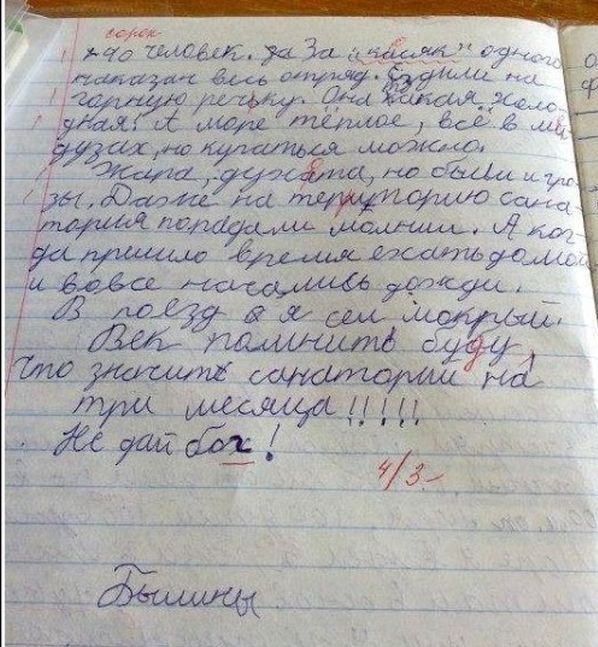 сорок
≈ 40 человек. За За "касяк" одного
наказан весь отряд. Ездили на
горную речьку. Она такая холо-
дная! А море тёплое, всё в ми
дузах, но купаться можно.
Жара, духата, но были и гро-
зы. Даже на територию сана-
тория попадали молнии. А ког-
да пришло время ехать домой
и вовсе начались дожди.
В поезд а я сел мокрый.
Век помнить буду,
что значить санаторий на
три месяца!!!!!
Не дай бох!
4/3-
Былины